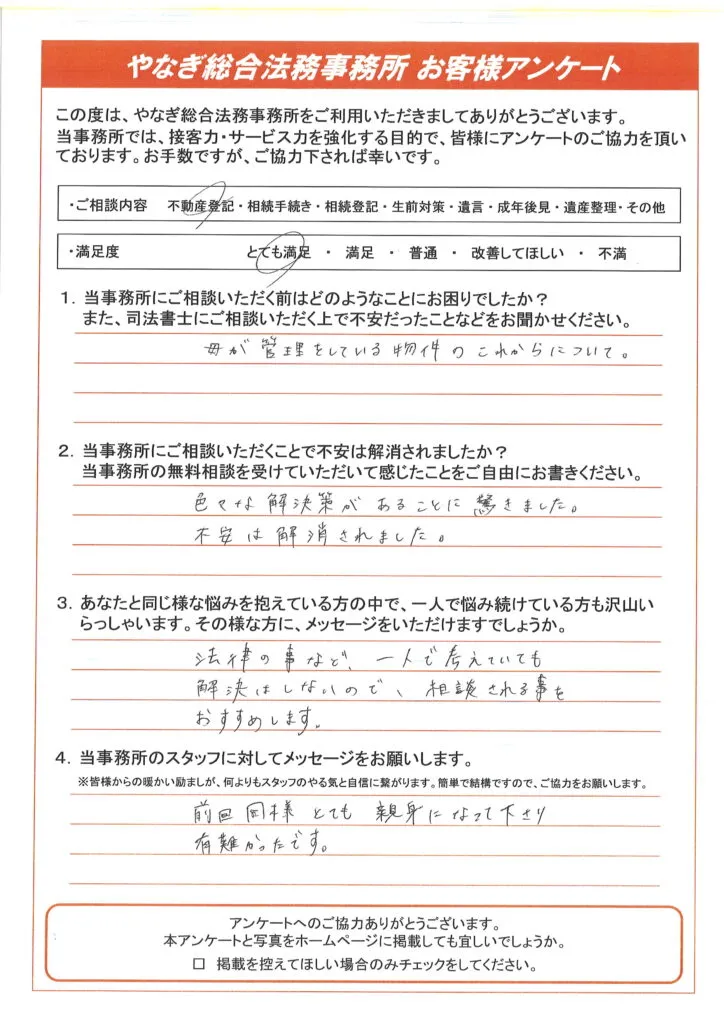 やなぎ総合法務事務所 お客様アンケート
この度は、やなぎ総合法務事務所をご利用いただきましてありがとうございます。
当事務所では、接客力・サービス力を強化する目的で、皆様にアンケートのご協力を頂い
ております。お手数ですが、ご協力下されば幸いです。
・ご相談内容 不動産登記・相続手続き・相続登記・生前対策・遺言・成年後見・遺産整理・その他
・満足度 とても満足 ・ 満足 ・ 普通 ・ 改善してほしい ・ 不満
1．当事務所にご相談いただく前はどのようなことにお困りでしたか？
また、司法書士にご相談いただく上で不安だったことなどをお聞かせください。
母が管理をしている物件のこれからについて。
2．当事務所にご相談いただくことで不安は解消されましたか？
当事務所の無料相談を受けていただいて感じたことをご自由にお書きください。
色々な解決策があることに驚きました。
不安は解消されました。
3．あなたと同じ様な悩みを抱えている方の中で、一人で悩み続けている方も沢山い
らっしゃいます。その様な方に、メッセージをいただけますでしょうか。
法律の事など、一人で考えていても
解決はしないので、相談される事を
おすすめします。
4．当事務所のスタッフに対してメッセージをお願いします。
※皆様からの暖かい励ましが、何よりもスタッフのやる気と自信に繋がります。簡単で結構ですので、ご協力をお願いします。
前回同様とても親身になって下さり
有難かったです。
アンケートへのご協力ありがとうございます。
本アンケートと写真をホームページに掲載しても宜しいでしょうか。
□ 掲載を控えてほしい場合のみチェックをしてください。